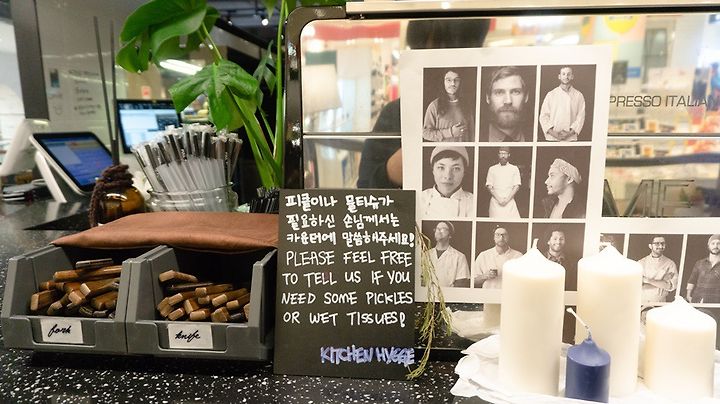 PRESSO ITALIAN
피클이나 물티슈가
필요하신 손님께서는
카운터에 말씀해주세요!
PLEASE FEEL FREE
TO TELL US IF YOU
NEED SOME PICKLES
OR WET TISSUES!
KITCHEN HYGGE
fork
knife